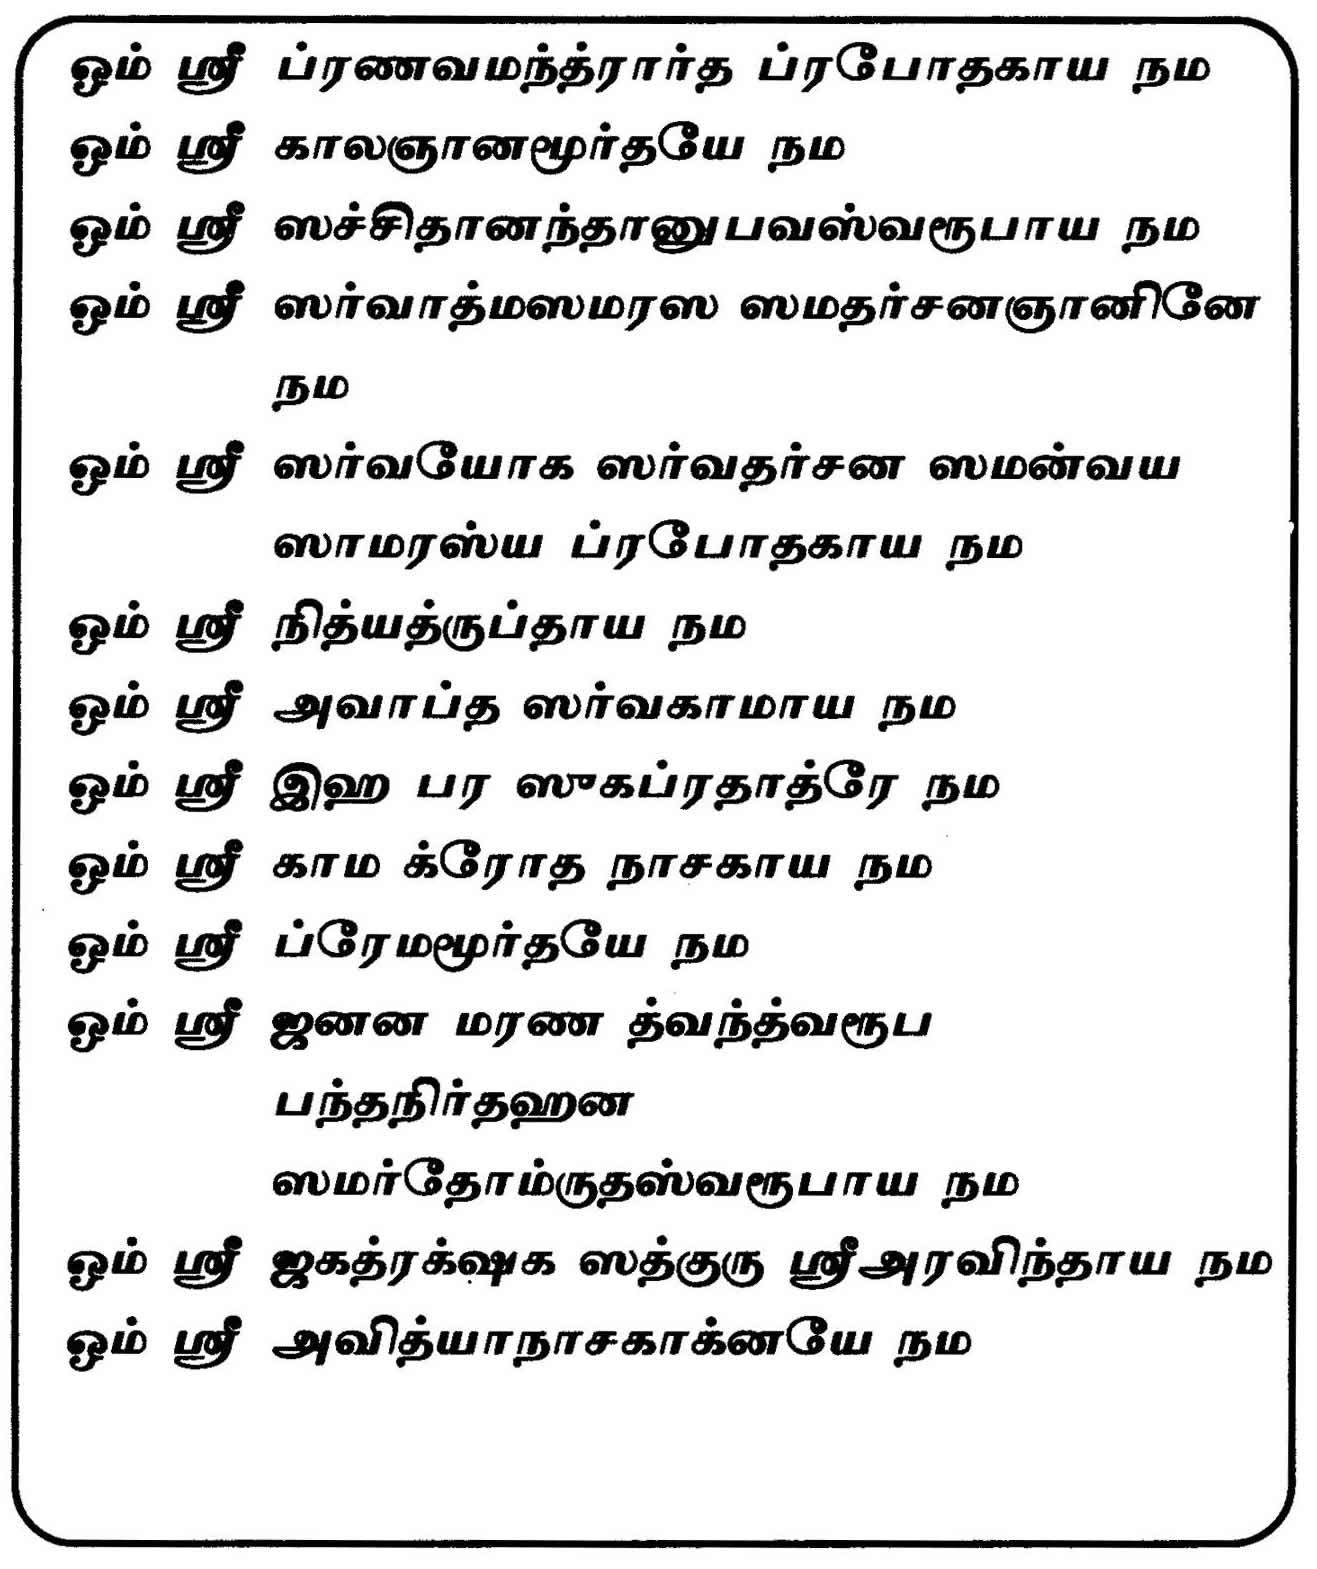 ஓம் ஸ்ரீ ப்ரணவமந்த்ரார்த ப்ரபோதகாய நம
ஓம் ஸ்ரீ காலஞானமூர்தயே நம
ஓம் ஸ்ரீ ஸச்சிதானந்தானுபவஸ்வரூபாய நம
ஓம் ஸ்ரீ ஸர்வாத்மஸமரஸ ஸமதர்சனஞானினே
நம
ஓம் ஸ்ரீ ஸர்வயோக ஸர்வதர்சன ஸமன்வய
ஸாமரஸ்ய ப்ரபோதகாய நம
ஓம் ஸ்ரீ நித்யத்ருப்தாய நம
ஓம் ஸ்ரீ அவாப்த ஸர்வகாமாய நம
ஓம் ஸ்ரீ இஹ பர ஸுகப்ரதாத்ரே நம
ஓம் ஸ்ரீ காம க்ரோத நாசகாய நம
ஓம் ஸ்ரீ ப்ரேமமூர்தயே நம
ஓம் ஸ்ரீ ஜனன மரண த்வந்த்வரூப
பந்தநிர்தஹன
ஸமர்தோம்ருதஸ்வரூபாய நம
ஓம் ஸ்ரீ ஜகத்ரக்ஷக ஸத்குரு ஸ்ரீஅரவிந்தாய நம
ஓம் ஸ்ரீ அவித்யாநாசகாக்னயே நம